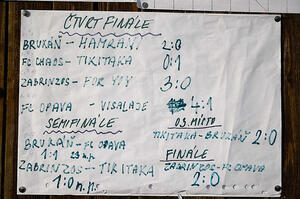 ČTVRTFINÁLE
BRUKÁŇ - HAMRAN. 2:0
FC CHAOS - TIKITAKA 0:1
ZABRINZOS - FOR YOY 3:0
FC OPAVA - VISALAJE 4:1
SEMIFINÁLE
BRUKÁŇ - FC OPAVA
1:1
ZABRINZOS - TIKITAKA
1:0 n.p.
O 3. MÍSTO
TIKITAKA - BRUKÁŇ 2:0
FINÁLE
ZABRINZOS - FC OPAVA
2:0